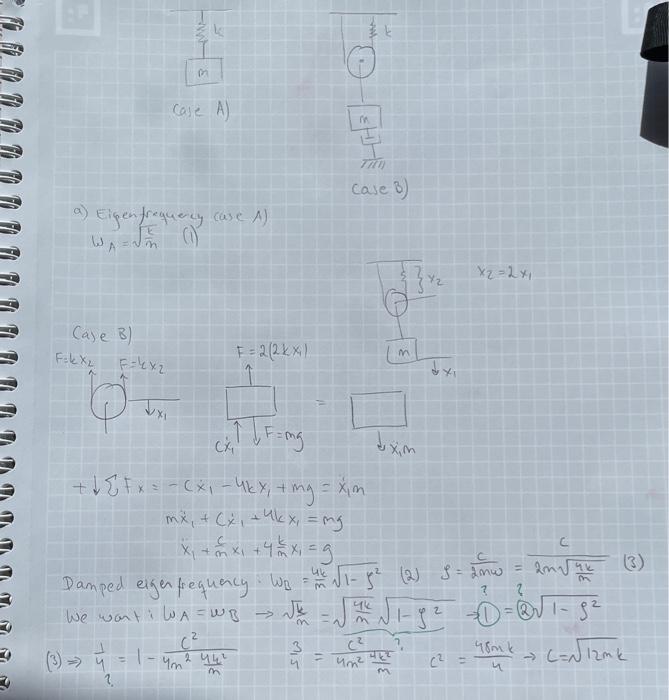 k
k
m
m
Case A)
Case B)
a) Eigenfrequency case A)
ω_A = √(k/m) (1)
x₂ x₂ = 2x₁
m
x₁
Case B)
F=kx₂ F=kx₂ F = 2(2kx₁)
x₁ = 
cẋ₁ F=mg ẍ₁m
+↓ΣFx = -cẋ₁ - 4kx₁ + mg = ẍ₁m
mẍ₁ + cẋ₁ + 4kx₁ = mg
ẍ₁ + c/m x₁ + 4 k/m x₁ = g
Damped eigenfrequency: ω_B = 4k/m √(1-ζ²) (2) ζ = c/(2mω) = c/(2m√(4k/m)) (3)
We want: ω_A = ω_B → √(k/m) = √(4k/m) √(1-ζ²) → ? 1 = ? 2 √(1-ζ²)
(3) ⇒ 1/4 ? = 1 - c²/(4m² 4k²/m) 3/4 = c²/(4m² 4k²/m) ? c² = 48mk/4 → c = √(12mk)